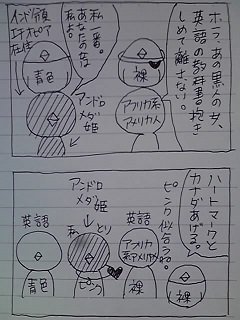 ホラ、あの黒人の女、
英語の教科書抱き
しめて離さない。
私一番。
あなたのあな
私お
インド領
エチオピア
在住
青色
裸
アンドロ
メダ姫
アフリカ系
アメリカ人
ハートマークと
カナダあげる。
ピンク似合うね。
アンドロ
メダ姫
英語
英語
あ
とり
アフリカ
系アメリカ人
青色
ピンク
裸
裸